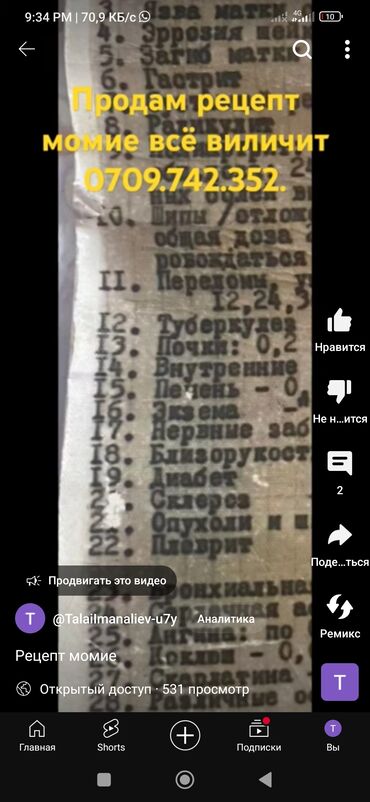 9:34 PM | 70,9 КБ/с
4G
10
Язва матки
4. Эррозия
5. Загиб матки
6. Гастрит
Продам рецепт
момие всё виличит
0709.742.352.
10. Шипы /отлож
общая доза
ровождаться
II. Переломы
12,24,3
I2. Туберкулез
I3. Почки: 0,2
I4. Внутренние
I5. Печень - 0
I6. Экзема
I7. Нервные заб
I8. Близорукост
I9. Диабет
Склероз
Опухоли и
22. Плеврит
25. Ангина: по
Нравится
Не н...ится
2
Поде...ться
Ремикс
Продвигать это видео
T
@Talailmanaliev-u7y
Аналитика
Рецепт момие
Открытый доступ · 531 просмотр
T
Главная
Shorts
Подписки
T
Вы